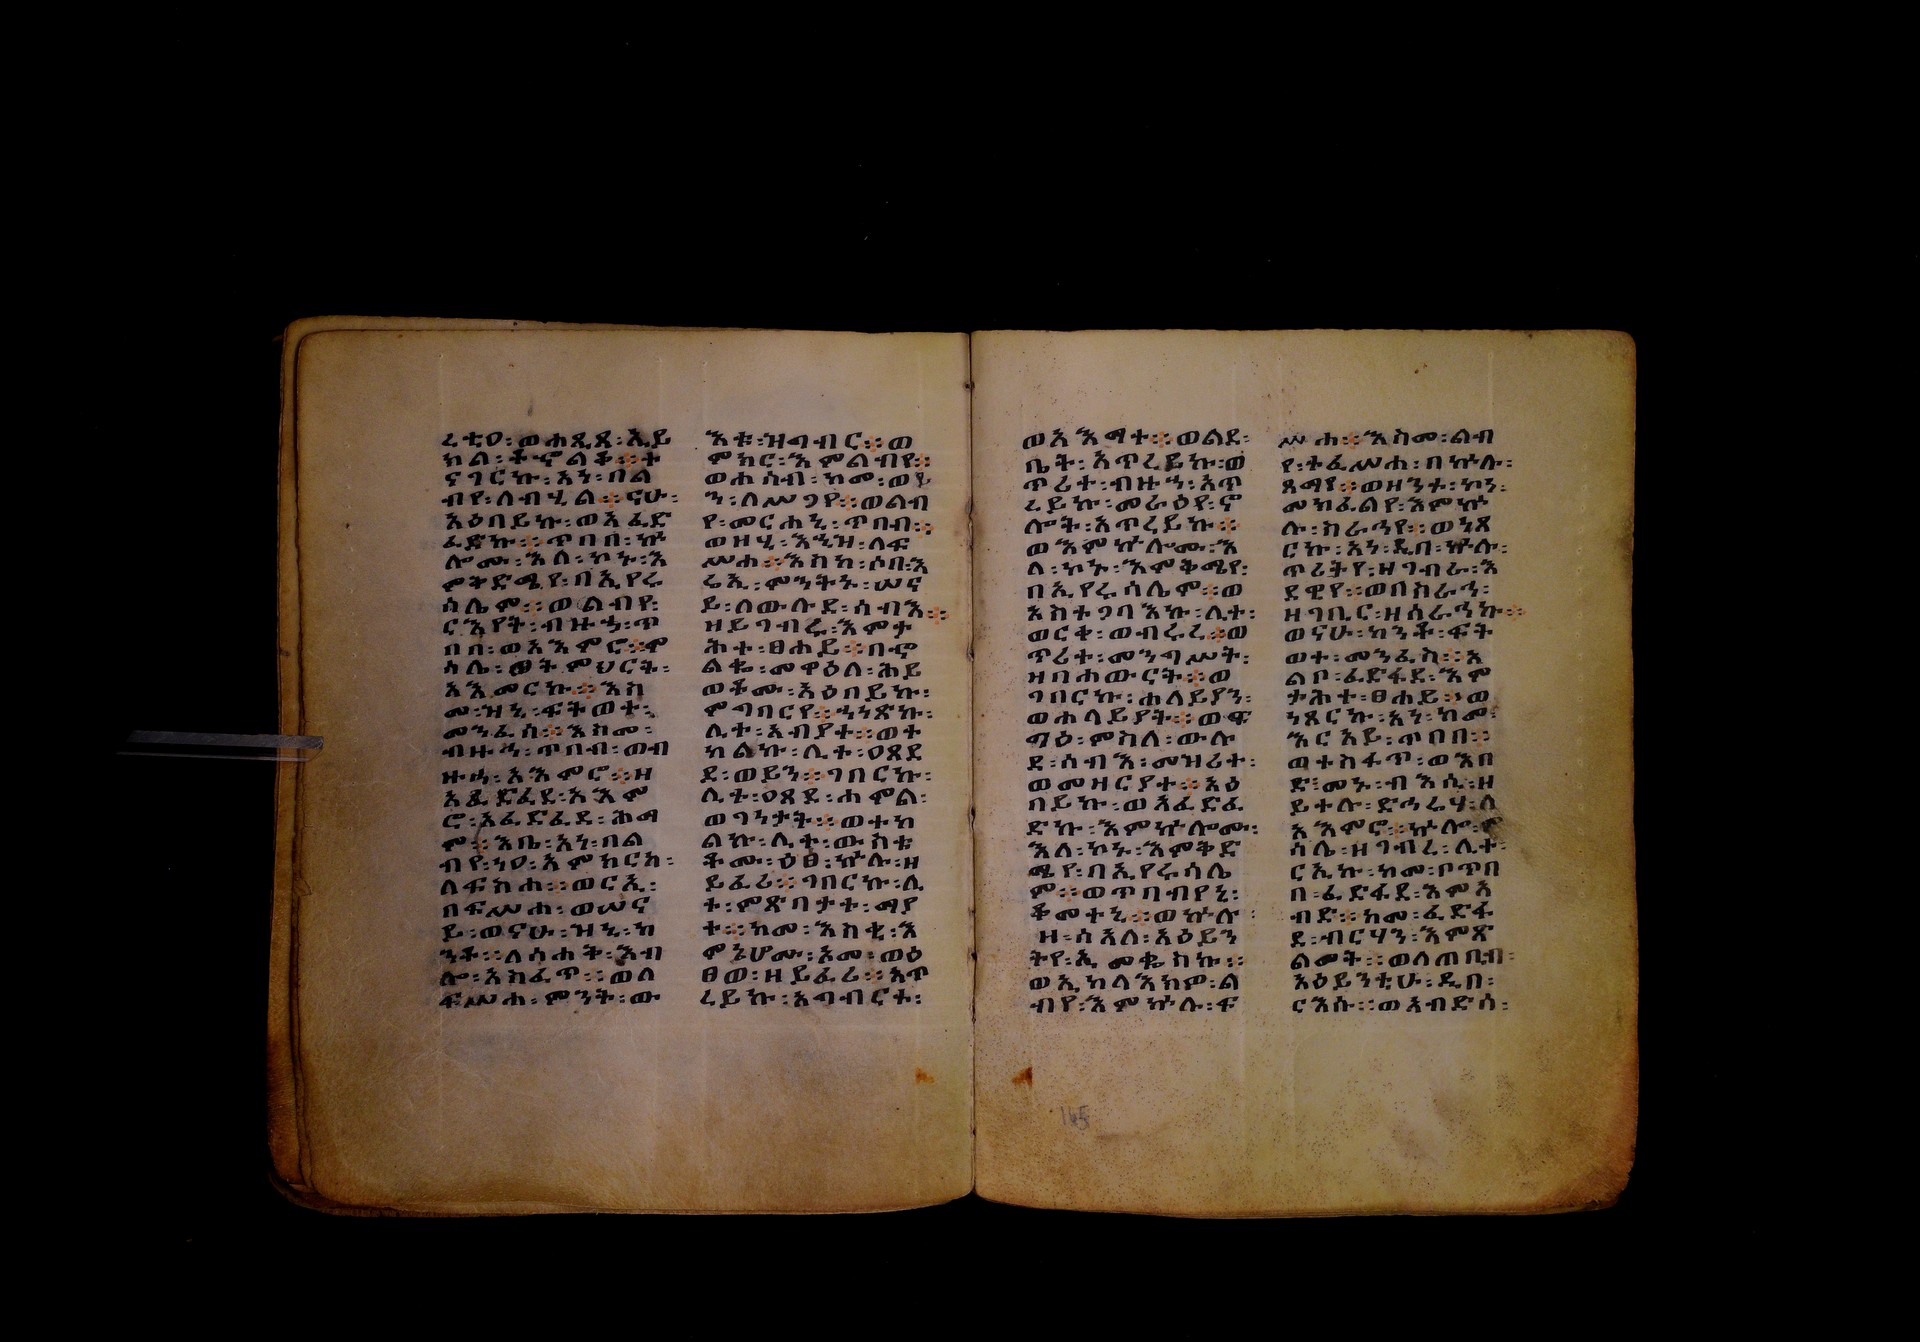 ረቲዐ፡ወሐጺጸ፡ኢይ
ክል፡ቶኖልቆ፨ተ
ናገርኩ፡አነ፡በል
ብየ፡ለብሂል፨ናሁ፡
አዕበይኩ፡ወአፈድ
ፈድኩ፨ጥበበ፡ኵ
ሎሙ፡እለ፡ኮኑ፡እ
ምትድሜየ፡በኢየሩ
ሳሌም፨ወልብየ፡
ርእየት፡ብዙኃ፡ጥ
በበ፡ወአእምሮ፨ም
ሳሌ፡ወትምህርት፡
አእመርኩ፨እስ
መ፡ዝኒ፡ፍትወተ፡
መንፈስ፨እስመ፡
ብዙኃ፡ጥበብ፡ወብ
ዙኃ፡አእምሮ፨ዘ
አፈድፈደ፡አእም
ሮ፡አፈድፈደ፡ሕማ
ም፨እቤ፡አነ፡በል
ብየ፡ነዐ፡አምክርከ፡
ለፍስሐ፨ወርኢ፡
በፍሡሐ፡ወሠና
ይ፡ወናሁ፡ዝኒ፡ከ
ንቱ፨ለሳሐት፡እብ
ሎ፡አስፈጥ፨ወለ
ፍሡሐ፡ምንት፡ው
እቱ፡ዝግብር፨ወ
ምክር፡እምልብየ፨
ወሐሳብ፡ከመ፡ወይ
ን፡ለሥጋየ፨ወልብ
የ፡መርሐኒ፡ጥበብ፨
ወዘሂ፡እኂዝ፡ለፍ
ሥሐ፨እስከ፡ሶበ፡እ
ሬኢ፡ምንትኑ፡ሠና
ይ፡ለውሉደ፡ሰብእ፨
ዘይገብሩ፡እምታ
ሕተ፡ፀሐይ፨በኖ
ልቈ፡መዋዕለ፡ሕይ
ወቶሙ፡አዕበይኩ፡
ምግባርየ፨ሓነጽኩ፡
ሊተ፡አብያተ፨ወተ
ከልኩ፡ሊተ፡ዐጸደ
ደ፡ወይን፨ገበርኩ፡
ሊተ፡ዐጸደ፡ሐምል፡
ወገነታት፨ወተከ
ልኩ፡ሊተ፡ውስቴ
ቶሙ፡ዕፀ፡ኵሉ፡ዘ
ይፈሪ፨ገበርኩ፡ሊ
ተ፡ምጽበታተ፡ማያ
ተ፨ከመ፡እስቂ፡እ
ምኔሆሙ፡አመ፡ወዕ
ፀወ፡ዘይፈሪ፨አጥ
ረይኩ፡አግብርተ፡
ወአእማተ፨ወልደ፡
ቤት፡አጥረይኩ፡ወ
ጥሪተ፡ብዙኃ፡አጥ
ረይኩ፡መራዕየ፡ኖ
ሎት፡አጥረይኩ፨
ወእምኵሎሙ፡እ
ለ፡ኮኑ፡እምቅሜየ፡
በኢየሩሳሌም፨ወ
አስተጋባእኩ፡ሊተ፡
ወርቀ፡ወብሩረ፨ወ
ጥሪተ፡መንግሥት፡
ዘበሐውርት፨ወ
ገበርኩ፡ሐላይያን፡
ወሐላይያት፨ወፍ
ግዕ፡ምስለ፡ውሉ
ደ፡ሰብእ፡መዝሪተ፡
ወመዝርያተ፨አዕ
በይኩ፡ወአፈድፈ
ድኩ፡እምኵሎሙ፡
እለ፡ኮኑ፡እምቅድ
ሜየ፡በኢየሩሳሌ
ም፨ወጥበብየኒ፡
ቆመተኒ፨ወኵሉ፡
ዘ፡ሰአለ፡አዕይን
ትየ፡ኢመቈስኩ፨
ወኢከላእክዎ፡ል
ብየ፡እምኵሉ፡ፍ
ሥሐ፨እስመ፡ልብ
የ፡ተፈሥሐ፡በኵሉ፡
ጻማየ፨ወዘንተ፡ኮነ፡
መክፈልየ፡እምኵ
ሉ፡ስራሓየ፨ወነጸ
ርኩ፡አነ፡ዲበ፡ኵሉ፡
ጥሪትየ፡ዘገብራ፡እ
ደዊየ፨ወበስራሓ፡
ዘገቢር፡ዘሰራሓኩ፨
ወናሁ፡ከንቱ፡ፍት
ወተ፡መንፈስ፨አ
ልቦ፡ፈድፋደ፡እም
ታሕተ፡ፀሐይ፨ወ
ነጸርኩ፡አነ፡ከመ፡
እርአይ፡ጥበበ፨
ወተስፋጥ፡ወእበ
ድ፡መኑ፡ብእሲ፡ዘ
ይተሉ፡ድኅሬሃ፡ለ
አእምሮ፨ኵሎ፡ም
ሳሌ፡ዘገብረ፡ሊተ፡
ርኢኩ፡ከመ፡ቦጥበ
በ፡ፈድፋደ፡እምአ
ብድ፨ከመ፡ፈድፋ
ደ፡ብርሃን፡እምጽ
ልመት፨ወለጠቢብ፡
አዕይንቲሁ፡ዲበ፡
ርእሱ፨ወአብድሰ፡